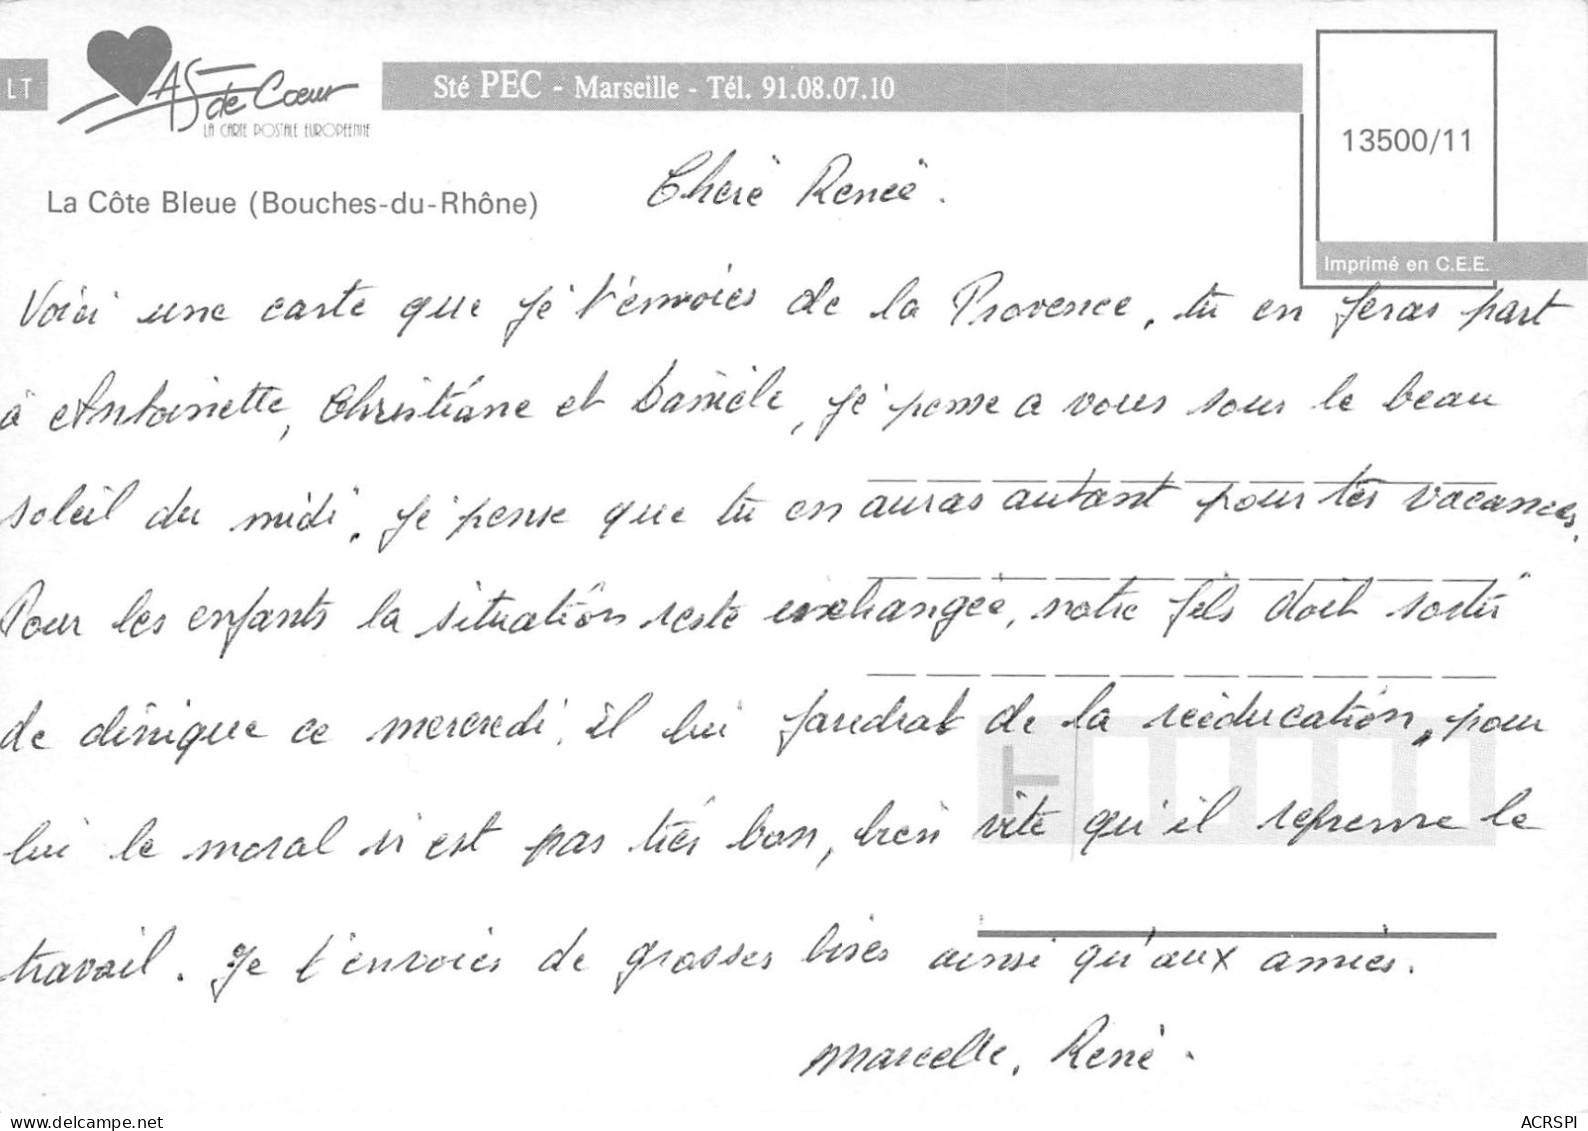 LT
AS de Cœur
LA CARTE POSTALE EUROPÉENNE
Sté PEC - Marseille - Tél. 91.08.07.10
13500/11
Imprimé en C.E.E.
La Côte Bleue (Bouches-du-Rhône)
Cheré Reneé.
Voici une carte que je t'envoies de la Provence, tu en feras part
à Antoinette, Christiane et Danièle, je pense a vous sous le beau
soleil du midi, je pense que tu en auras autant pour tes vacances,
Pour les enfants la situation reste inchangée, notre fils doit sortir
de clinique ce mercredi, il lui faudrat de la rééducation, pour
lui le moral n'est pas très bon, bien vite qu'il reprenne le
travail. Je t'envoies de grosses bises ainsi qu'aux amies.
Marcelle, René.
delcampe.net
ACRSPI